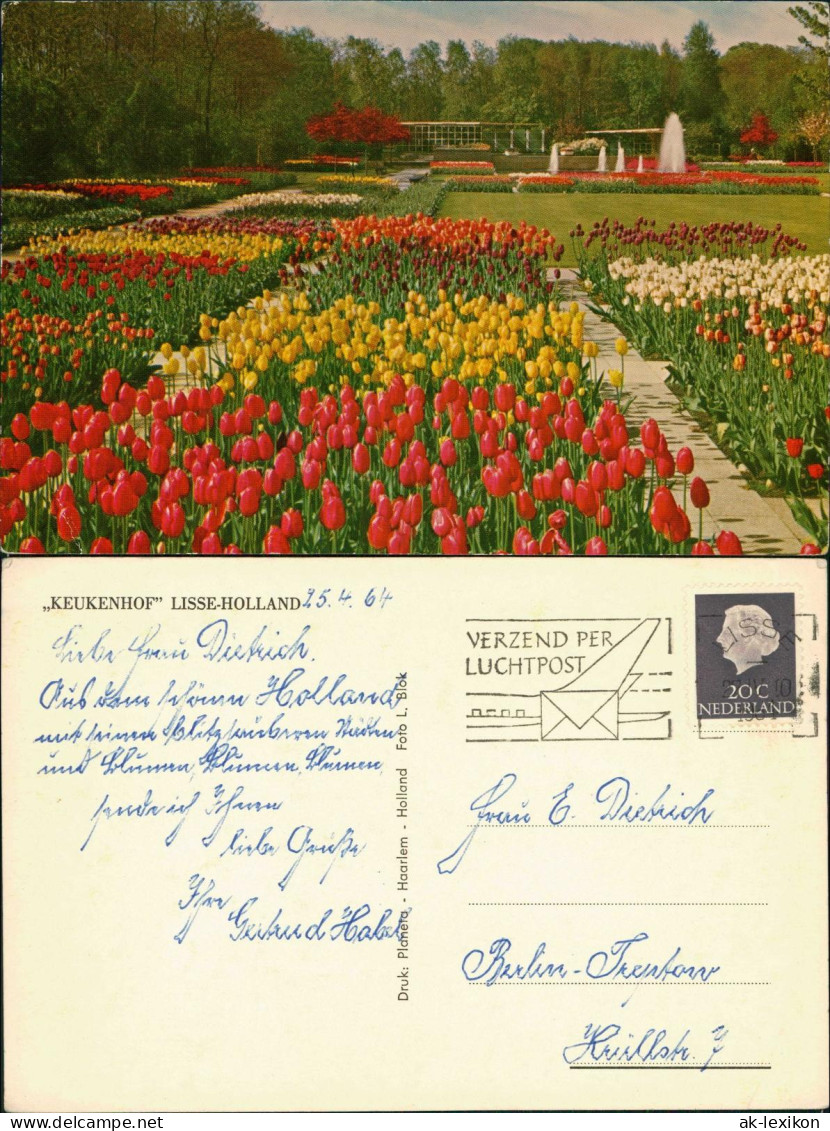 „KEUKENHOF” LISSE-HOLLAND 25.4.64
Liebe Frau Dietrich.
Aus dem schönen Holland
mit seinen blitzsauberen Städten
und Blumen, Blumen, Blumen,
sende ich Ihnen
liebe Grüße
Ihre
Gertrud Habel
Druk: Planeta - Haarlem - Holland Foto L. Blok
VERZEND PER
LUCHTPOST
LISSE
1964
20C
NEDERLAND
Frau E. Dietrich
Berlin-Treptow
Krüllstr. 7
www.ansichtskarten-lexikon.de
ak-lexikon